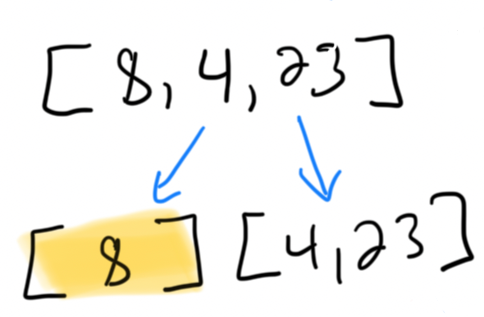 [ 8, 4, 23 ]
[ 8 ] [ 4, 23 ]